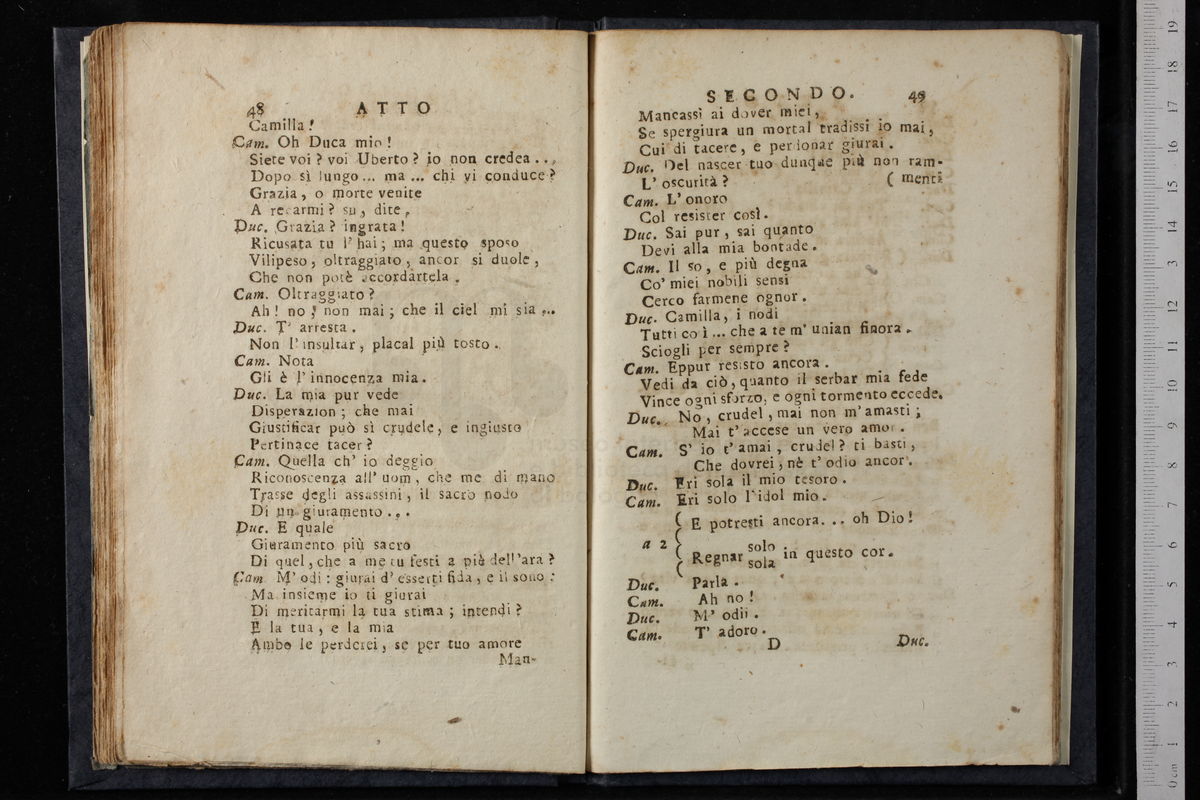 48 ATTO
Camilla!
Cam. Oh Duca mio!
Siete voi? voi Uberto? io non credea...
Dopo sì lungo... ma... chi vi conduce?
Grazia, o morte venite
A recarmi? su, dite.
Duc. Grazia? ingrata!
Ricusata tu l'hai; ma questo sposo
Vilipeso, oltraggiato, ancor si duole,
Che non potè accordartela.
Cam. Oltraggiato?
Ah! no, non mai; che il ciel mi sia...
Duc. T' arresta.
Non l'insultar, placal più tosto.
Cam. Nota
Gli è l'innocenza mia.
Duc. La mia pur vede
Disperazion; che mai
Giustificar può sì crudele, e ingiusto
Pertinace tacer?
Cam. Quella ch' io deggio
Riconoscenza all' uom, che me di mano
Trasse degli assassini, il sacro nodo
Di un giuramento...
Duc. E quale
Giuramento più sacro
Di quel, che a me tu festi a piè dell'ara?
Cam. M' odi: giurai d' esserti fida, e il sono:
Ma insieme io ti giurai
Di meritarmi la tua stima; intendi?
E la tua, e la mia
Ambo le perderei, se per tuo amore
Man-
SECONDO. 49
Mancassi ai dover miei,
Se spergiura un mortal tradissi io mai,
Cui di tacere, e perdonar giurai.
Duc. Del nascer tuo dunque più non ram-
L' oscurità? (menti
Cam. L' onoro
Col resister così.
Duc. Sai pur, sai quanto
Devi alla mia bontade.
Cam. Il so, e più degna
Co' miei nobili sensi
Cerco farmene ognor.
Duc. Camilla, i nodi
Tutti co ì... che a te m' unian finora.
Sciogli per sempre?
Cam. Eppur resisto ancora.
Vedi da ciò, quanto il serbar mia fede
Vince ogni sforzo, e ogni tormento eccede.
Duc. No, crudel, mai non m' amasti;
Mai t' accese un vero amor.
Cam. S' io t' amai, crudel? ti basti,
Che dovrei, nè t' odio ancor.
Duc. Eri sola il mio tesoro.
Cam. Eri solo l'idol mio.
a 2 { E potresti ancora... oh Dio!
Regnar solo sola in questo cor.
Duc. Parla.
Cam. Ah no!
Duc. M' odii.
Cam. T' adoro.
D Duc.